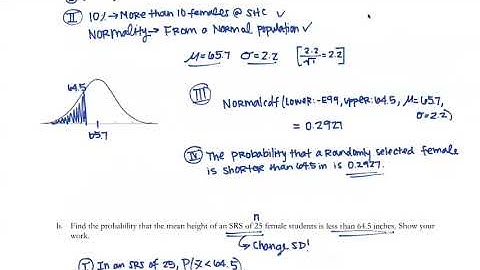 II 10% → More than 10 females @ SHC ✓
Normality → From a Normal population ✓
μ = 65.7 σ = 2.2 [2.2/√1 = 2.2]
64.5
65.7
III Normalcdf (lower: -E99, upper: 64.5, μ = 65.7, σ = 2.2)
= 0.2927
IV The probability that a randomly selected female
is shorter than 64.5 in is 0.2927.
n
b. Find the probability that the mean height of an SRS of 25 female students is less than 64.5 inches. Show your
work.
→ Change SD!
I In an SRS of 25, P(x̄ < 64.5)